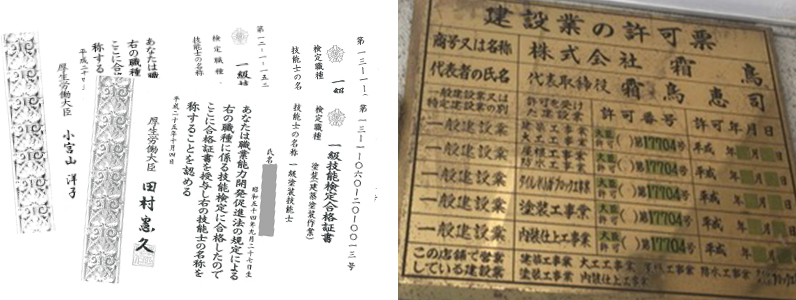 第一三―一―一〇六〇―二〇―〇〇一三号
一級技能検定合格証書
検定職種 塗装(建築塗装作業)
技能士の名称 一級塗装技能士
氏名
昭和五十四年九月二十七日生
あなたは職業能力開発促進法の規定による
右の職種に係る技能検定に合格したので
ここに合格証書を授与し右の技能士の名称を
称することを認める
平成二十五年十月四日
厚生労働大臣 田村憲久
第一三―一―
検定職種
技能士の名
第一二―一―
一級技
検定職種
技能士の名称
あなたは職
右の職種
ここに合
称する
平成二十
厚生労働大臣 小宮山洋子
建設業の許可票
商号又は名称 株式会社 霜鳥
代表者の氏名 代表取締役 霜鳥恵司
一般建設業又は特定建設業の別 許可を受けた建設業 許可番号 許可年月日
一般建設業 建築工事業 大工工事業 大臣 許可( )第17704号 平成 年 月 日
一般建設業 屋根工事業 防水工事業 許可( )第17704号 平成 年 月 日
一般建設業 タイル・れんが・ブロック工事業 許可( )第17704号 平成 年 月 日
一般建設業 塗装工事業 許可( )第17704号 平成 年 月 日
一般建設業 内装仕上工事業 許可( )第17704号 平成 年 月 日
この店舗で営業している建設業 建築工事業 大工工事業 屋根工事業 防水工事業
塗装工事業 内装仕上工事業